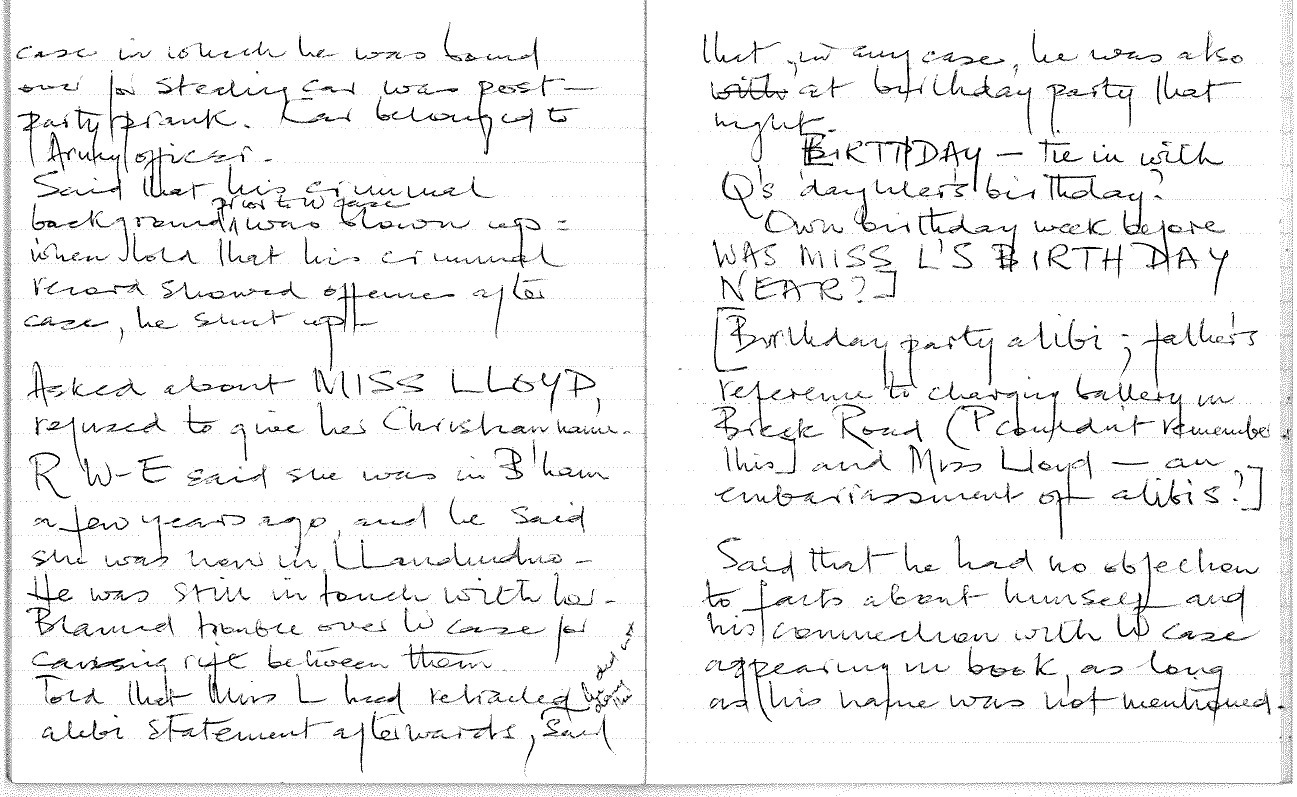 case in which he was bound
over for stealing car was post-
party prank. Car belonged to
Army officer.
Said that his criminal
prior to W case
background was blown up:
when told that his criminal
record showed offences after
case, he shut up.
Asked about MISS LLOYD,
refused to give her Christian name.
R W-E said she was in B'ham
a few years ago, and he said
she was now in LLandudno-
He was still in touch with her.
Blamed trouble over W case for
causing rift between them
Told that Miss L had retracted he did not
deny this
alibi statement afterwards, said
that, in any case, he was also
with at birthday party that
night.
BIRTHDAY - tie in with
Q's daughter's birthday?
Own birthday week before
WAS MISS L'S BIRTHDAY
NEAR?]
[Birthday party alibi; father's
reference to charging battery in
Breck Road (P couldn't remember
this] and Miss Lloyd - an
embarrassment of alibis?]
Said that he had no objection
to facts about himself and
his connection with W case
appearing in book, as long
as his name was not mentioned.